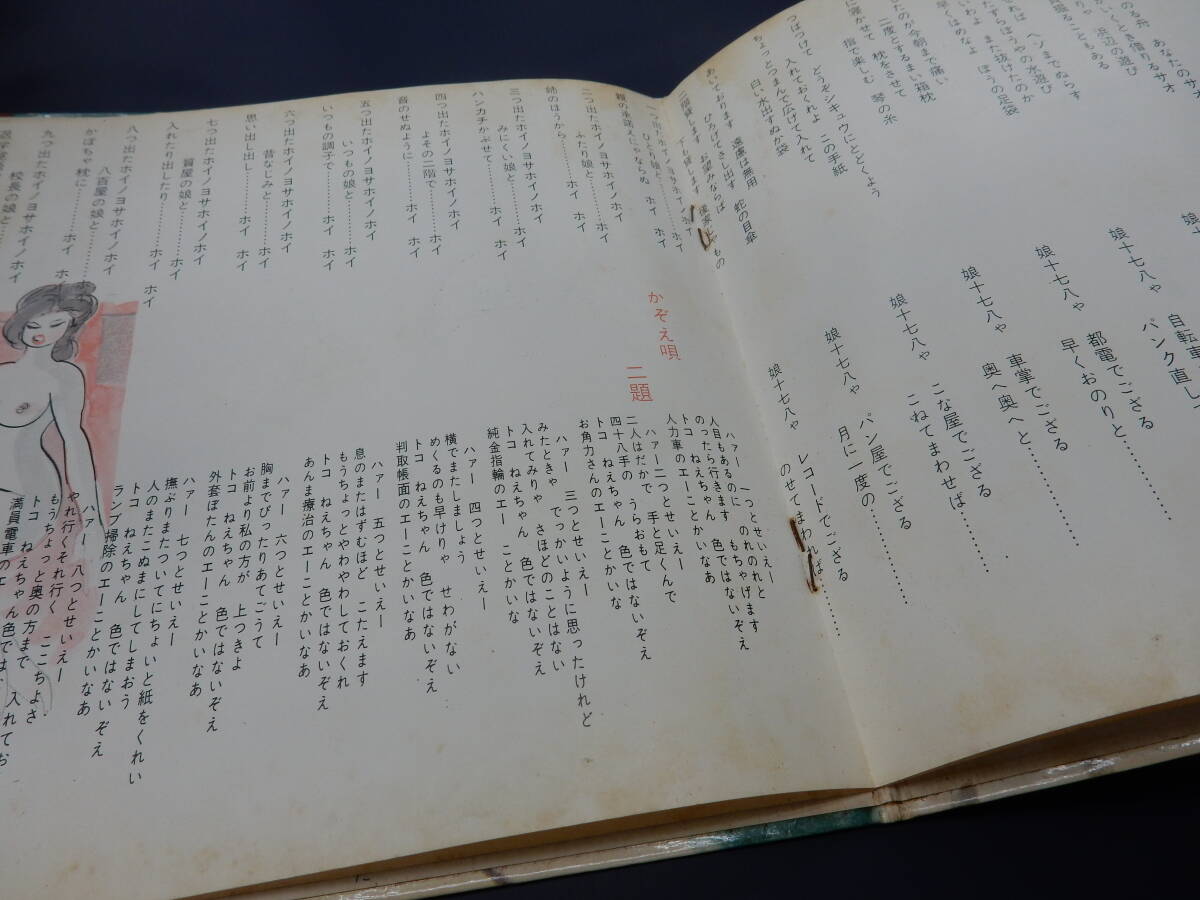 のる舟　あなたのサオ
いくとき借りるサオ
浜辺の遊び
撮ることもある
れば　ヘンまでぬらす
たずらぼうやの水遊び
いわよ　また抜けたのか
早くはめなよ　ぼうの足袋
たのが今朝まで痛い
二度とするまい箱枕
に寝かせて　枕をさせて
指で楽しむ　琴の糸
つばつけて　入れておくれよ　この手紙
どうぞシキュウにとどくよう
ちょっとつまんで広げて入れて
白い水出すぬか袋
あいております　遠慮は無用
ひろげてさし出す　蛇の目傘
二階貸します　お望みならば
下も貸します
もの
娘十
娘十七八ゃ　自転車
パンク直し
娘十七八ゃ　都電でござる
早くおのりと…………
娘十七八ゃ　車掌でござる
奥へ奥へと…………
娘十七八ゃ　こな屋でござる
こねてまわせば…………
娘十七八ゃ　パン屋でござる
月に一度の…………
娘十七八ゃ　レコードでござる
のせてまわれば…………
かぞえ唄　二題
一つ出たホイノヨサホイノホイ
ひとり娘と………ホイ
親の承諾えにゃならぬ　ホイ　ホイ
二つ出たホイノヨサホイノホイ
ふたり娘と………ホイ
姉のほうから………ホイ　ホイ
三つ出たホイノヨサホイノホイ
みにくい娘と………ホイ
ハンカチかぶせて………ホイ　ホイ
四つ出たホイノヨサホイノホイ
よその二階で………ホイ
音のせぬように………ホイ　ホイ
五つ出たホイノヨサホイノホイ
いつもの娘と………ホイ
いつもの調子で………ホイ　ホイ
六つ出たホイノヨサホイノホイ
昔なじみと………ホイ
思い出し出し………ホイ　ホイ
七つ出たホイノヨサホイノホイ
質屋の娘と………ホイ
入れたり出したり………ホイ　ホイ
八つ出たホイノヨサホイノホイ
八百屋の娘と………ホイ
かぼちゃ枕に………ホイ　ホイ
九つ出たホイノヨサホイノホイ
校長の娘と
ハァー　一つとせいえー
人目もあるのに　のれのれと
のったら行きます　もちゃげます
トコ　ねえちゃん　色ではないぞえ
人力車のエーことかいなあ
ハァー二つとせいえー
二人はだかで　手と足くんで
四十八手の　うらおもて
トコ　ねえちゃん　色ではないぞえ
お角力さんのエーことかいな
ハァー　三つとせいえー
みたときゃ　でっかいように思ったけれど
入れてみりゃ　さほどのことはない
トコ　ねえちゃん　色ではないぞえ
純金指輪のエー　ことかいな
ハァー　四つとせいえー
横でまたしましょう
めくるのも早けりゃ　せわがない
トコ　ねえちゃん　色ではないぞえ
判取帳面のエーことかいなあ
ハァー　五つとせいえー
息のまたはずむほど　こたえます
もうちょっとやわやわしておくれ
トコ　ねえちゃん　色ではないぞえ
あんま療治のエーことかいなあ
ハァー　六つとせいえー
胸までぴったりあてごうて
お前より私の方が　上つきよ
トコ　ねえちゃん　色ではないぞえ
外套ぼたんのエーことかいなあ
ハァー　七つとせいえー
撫ぶりまたついてにちょいと紙をくれい
人のまたこぬまにしてしまおう
トコ　ねえちゃん　色ではないぞえ
ランプ掃除のエーことかいなあ
ハァー　八つとせいえー
やれ行くそれ行く　ここちよさ
もうちょっと奥の方まで　入れてお
トコ　ねえちゃん色では
満員電車のエ